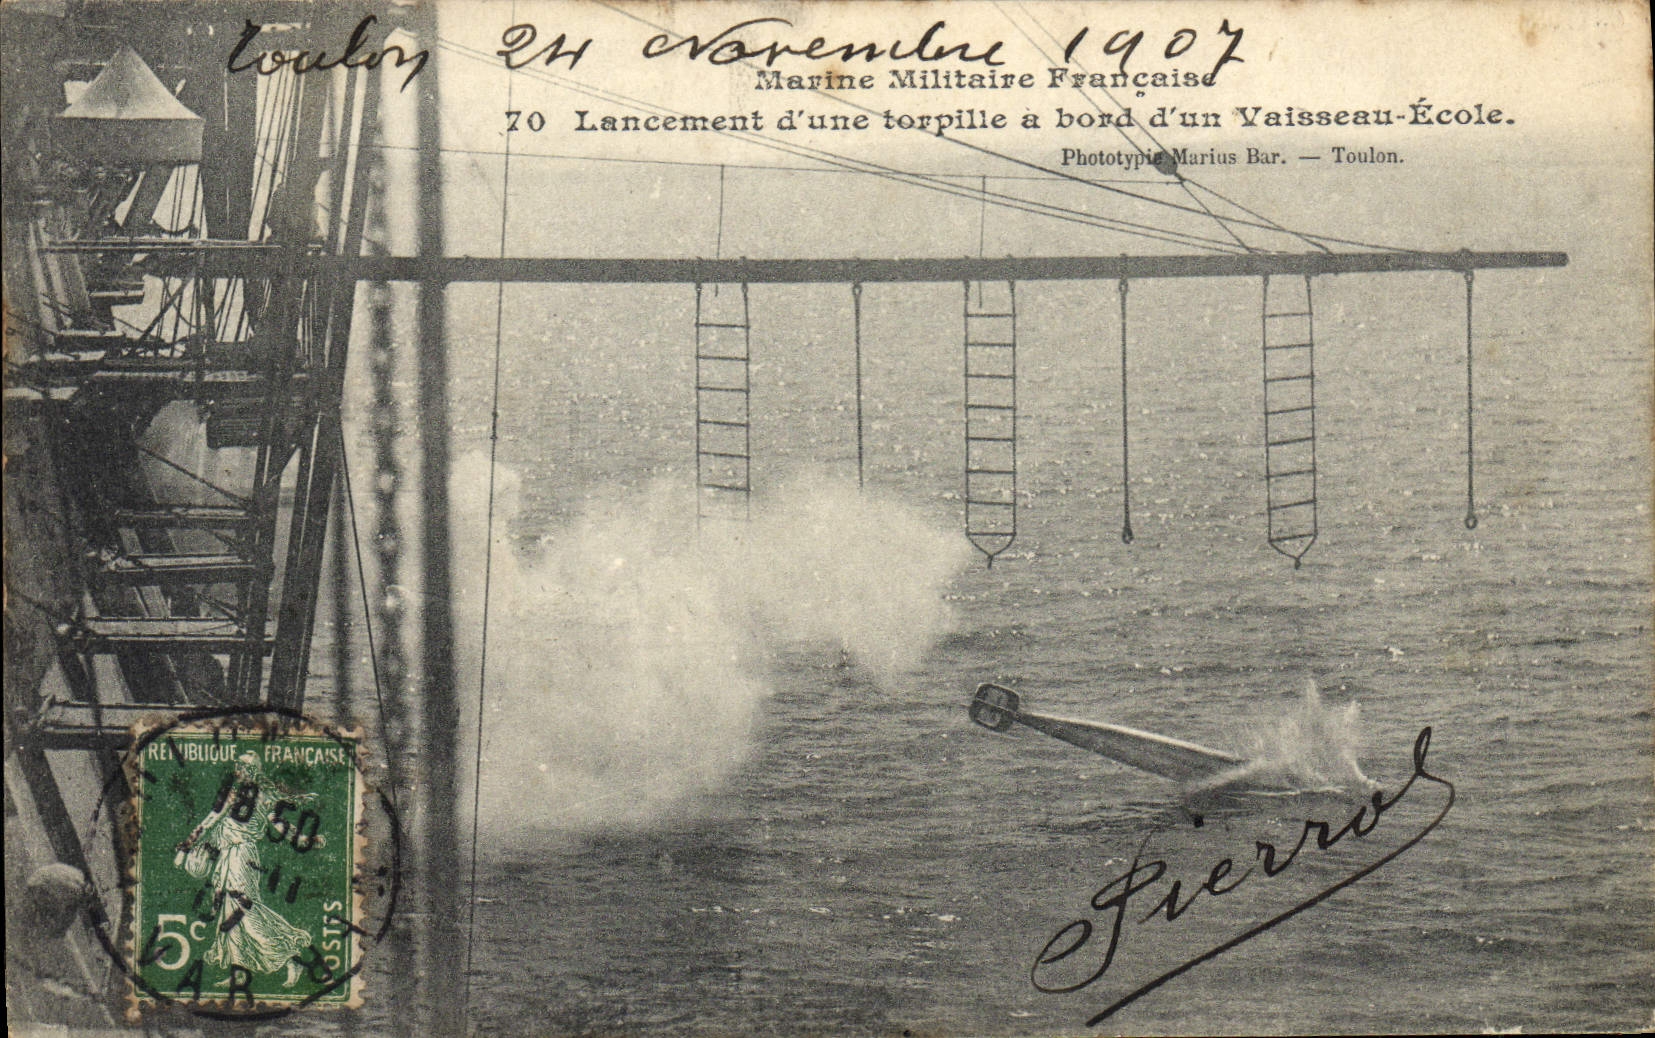 Toulon 24 Novembre 1907
Marine Militaire Française
70 Lancement d'une torpille à bord d'un Vaisseau-École.
Phototypie Marius Bar. — Toulon.
Pierrol
REPUBLIQUE FRANÇAISE
18 50
-11
07
5c
POSTES
VAR